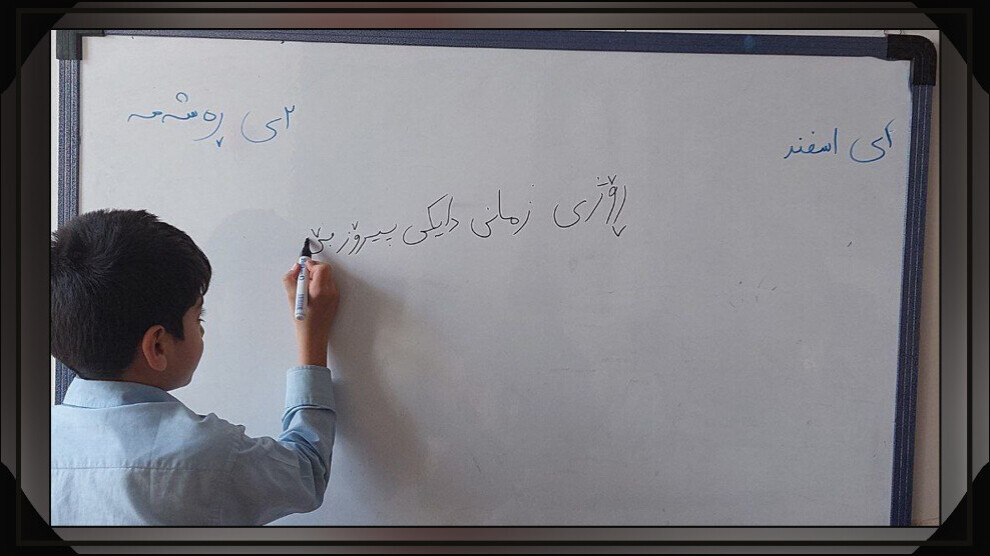 ۲ی اسفند
۲ی ڕەشەمە
ڕۆژی زمانی دایکی پیرۆز بێ